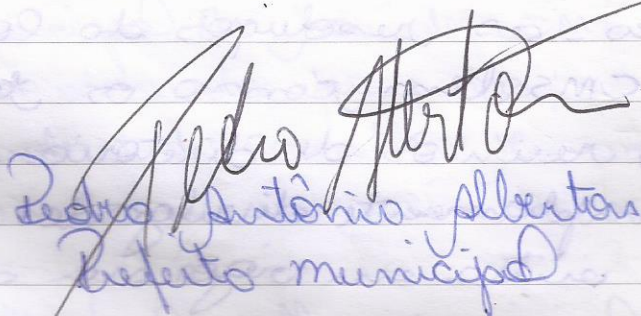 Pedro Alberton
Pedro Antônio Alberton
Prefeito municipal